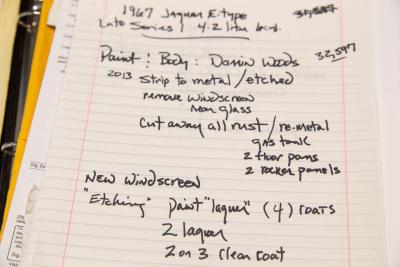 1967 Jaguar E-type
Late Series 1 4.2 liter
Paint : Body : Darrin Woods 32,597
2013 Strip to metal / etched
remove windscreen
glass
Cut away all rust / re-metal
gas tank
2 floor pans
2 rocker panels
New windscreen
"Etching" paint "laquer" (4) coats
2 laquer
2 or 3 clear coat